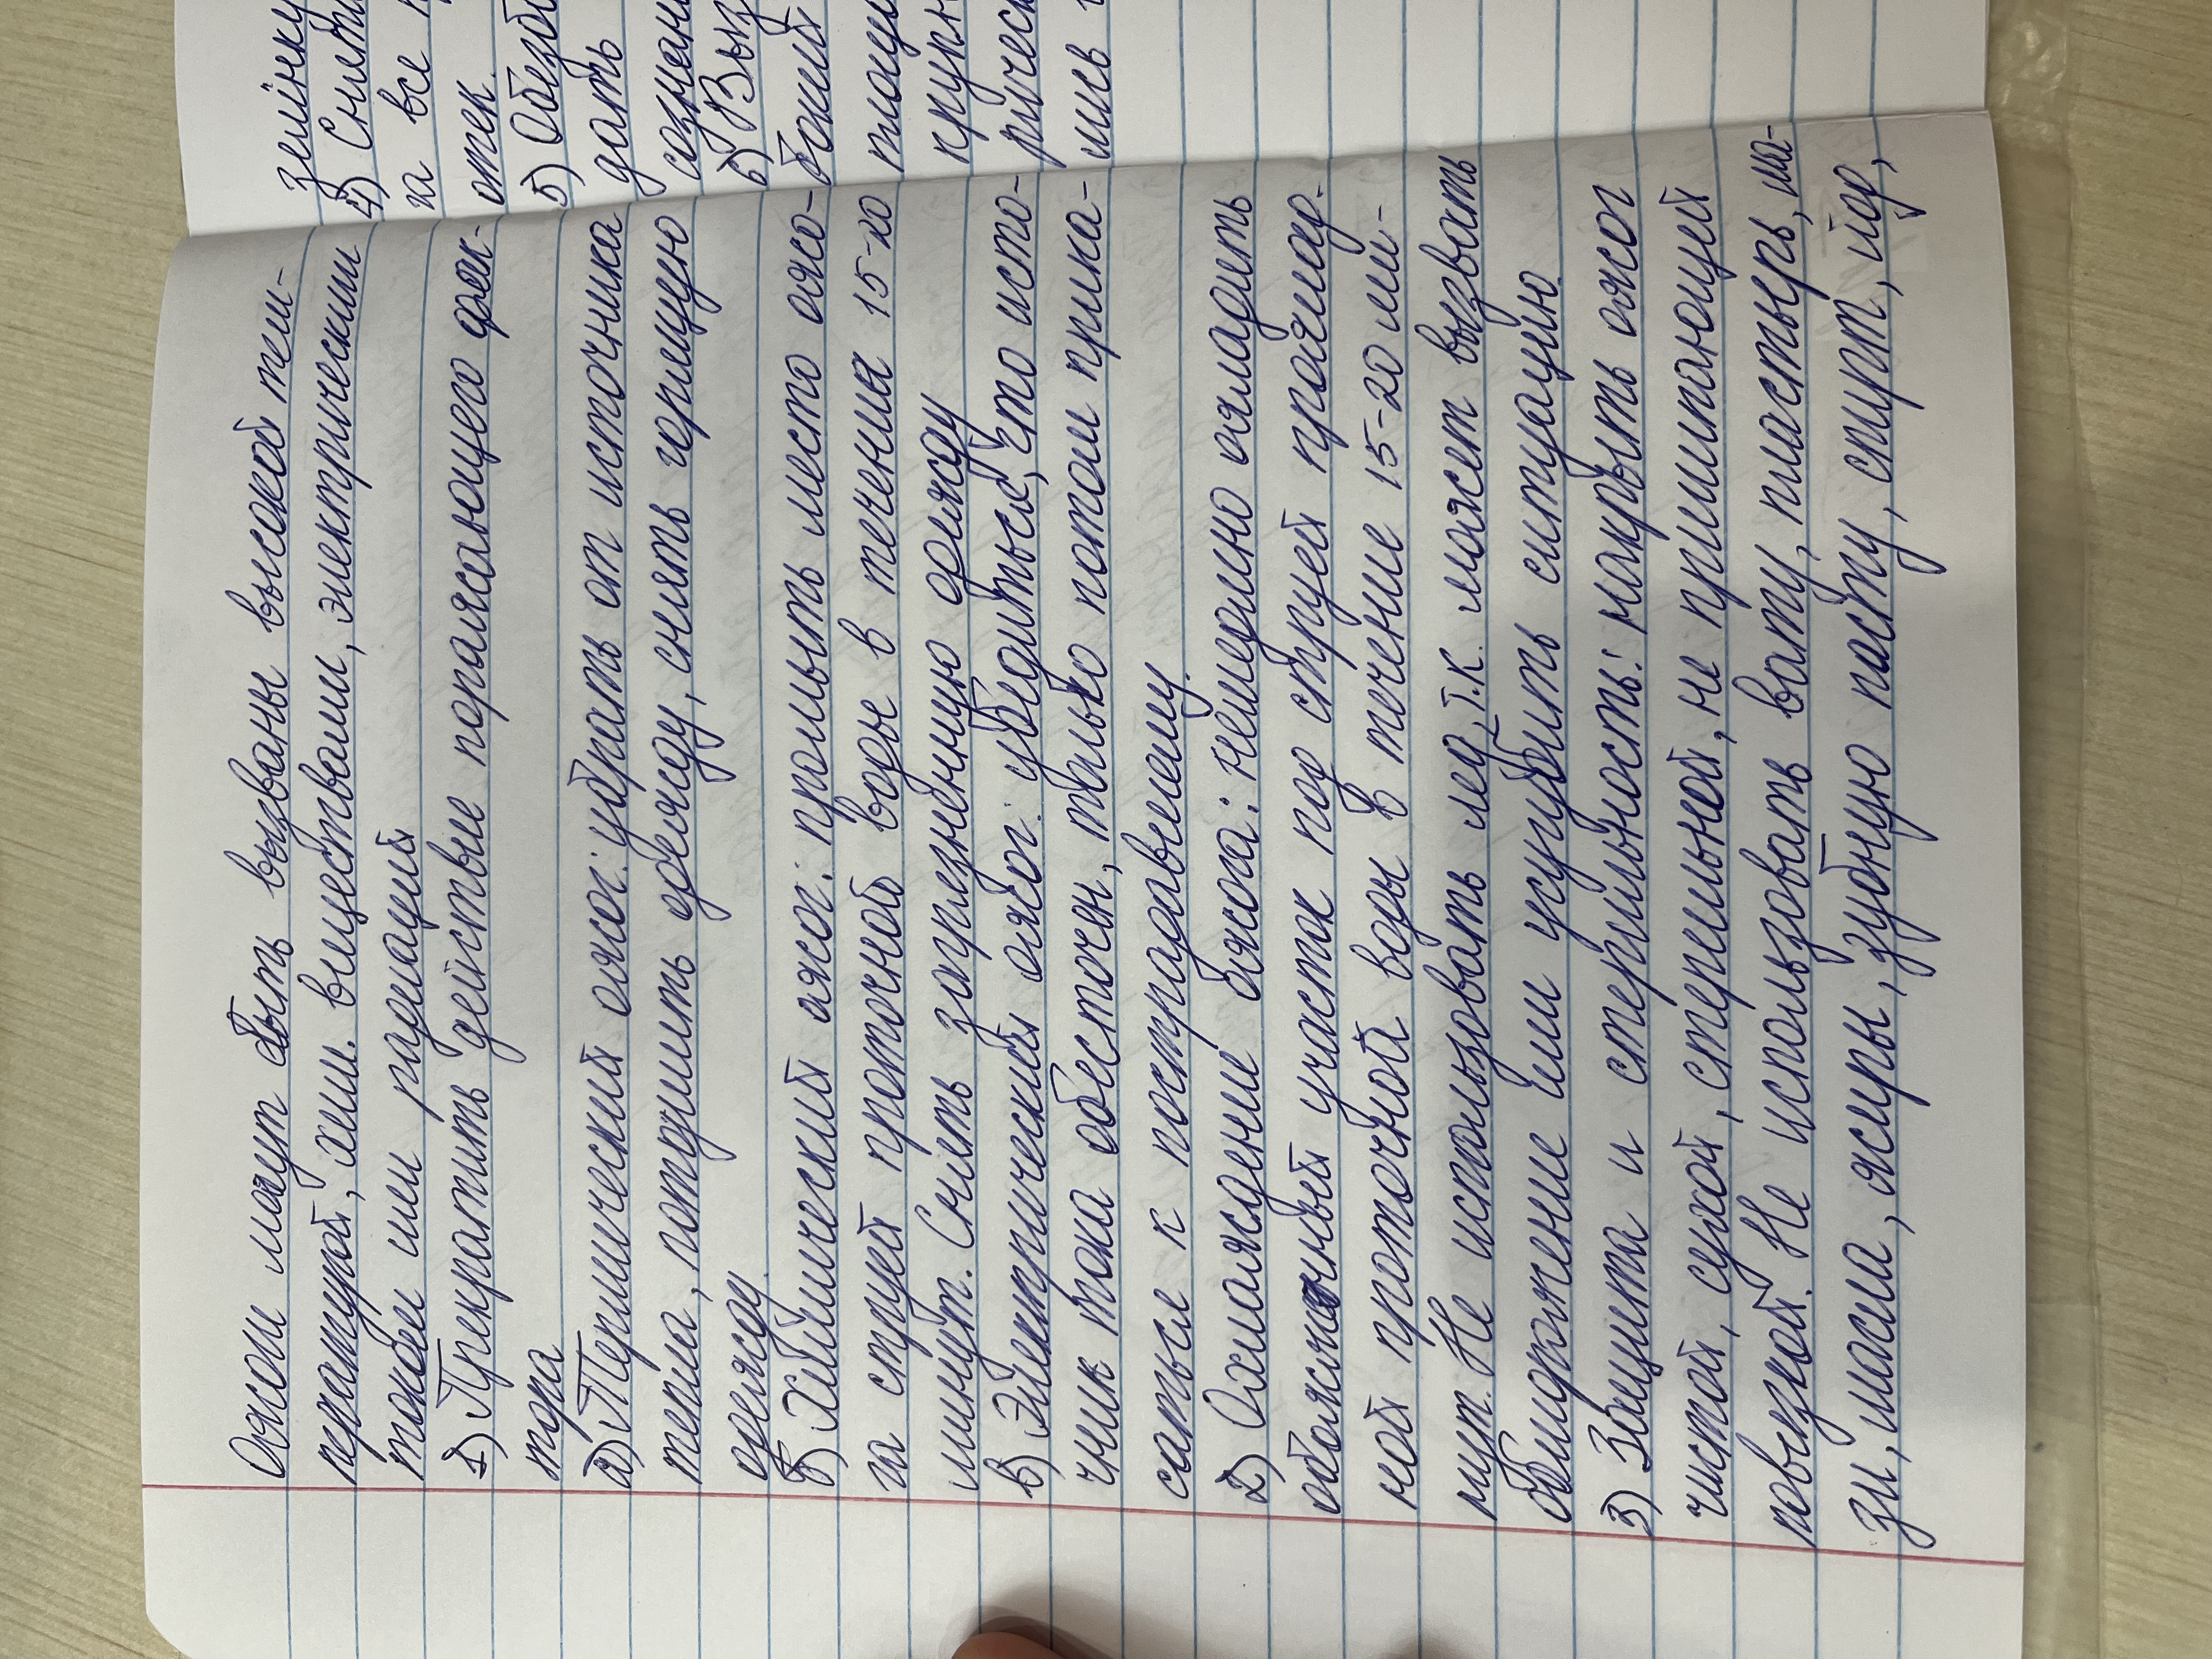 Ожоги могут быть вызваны высокой тем-
пературой, хим. веществами, электрическим
током или радиацией
1) Прекратить действие поражающего фак-
тора
а) Термический ожог: убрать от источника
тепла, потушить одежду, снять горящую
одежду.
б) Химический ожог: промыть место ожо-
га струей проточной воды в течения 15-20
минут. Снять загрязненную одежду
в) Электрический ожог: убедиться, что исто-
чник тока обесточен, только потом прика-
саться к пострадавшему.
2) Охлаждение ожога: немедленно охладить
обожженный участок под струей прохлад-
ной проточной воды в течение 15-20 ми-
нут. Не использовать лед, т.к. может вызвать
обморожение или усугубить ситуацию
3) Защита и стерильность: накрыть ожог
чистой, сухой, стерильной, не прилипающей
повязкой. Не использовать вату, пластырь, ма-
зи, масла, жиры, зубную пасту, спирт, йод,
4)
на все
отек.
5)
дать
6)